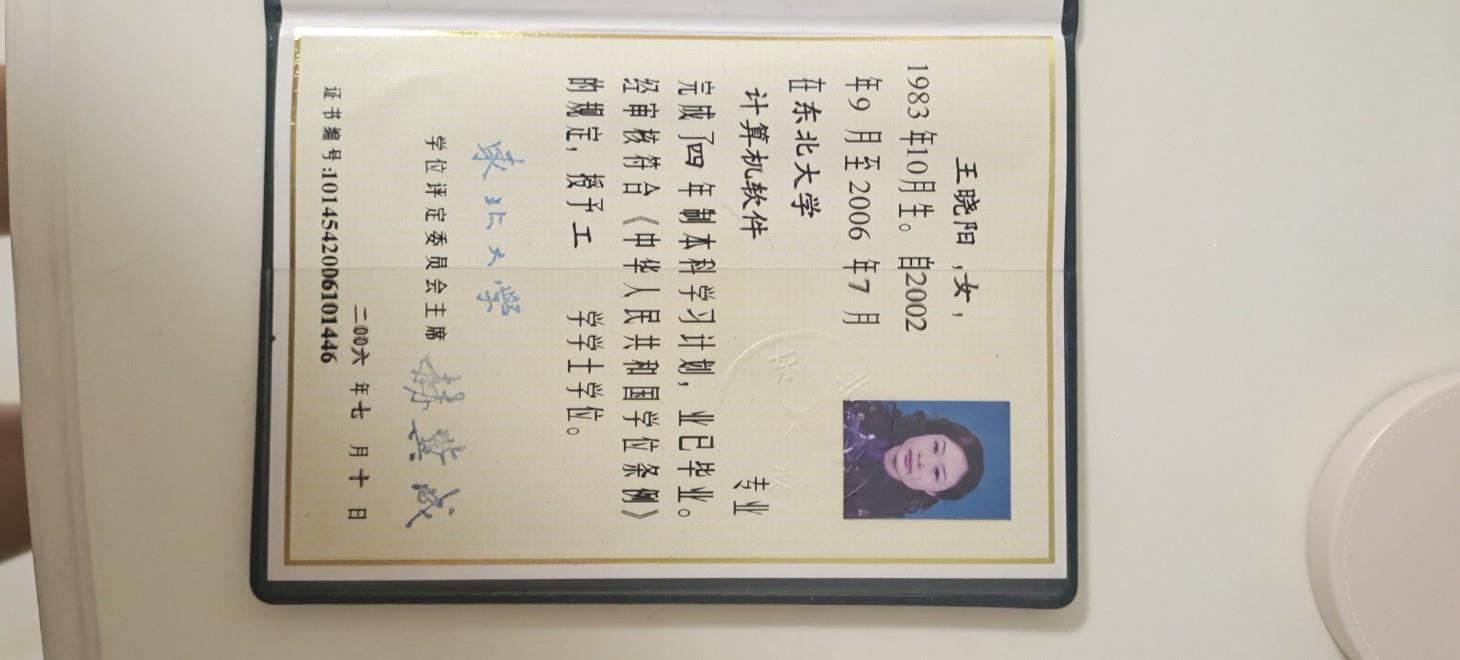 王晓阳，女，
1983年10月生。自2002
年9月至2006年7月
在东北大学
计算机软件 专业
完成了四年制本科学习计划，业已毕业。
经审核符合《中华人民共和国学位条例》
的规定，授予工 学学士学位。
东北大学
学位评定委员会主席
二〇〇六年七月十日
证书编号:1014542006101446